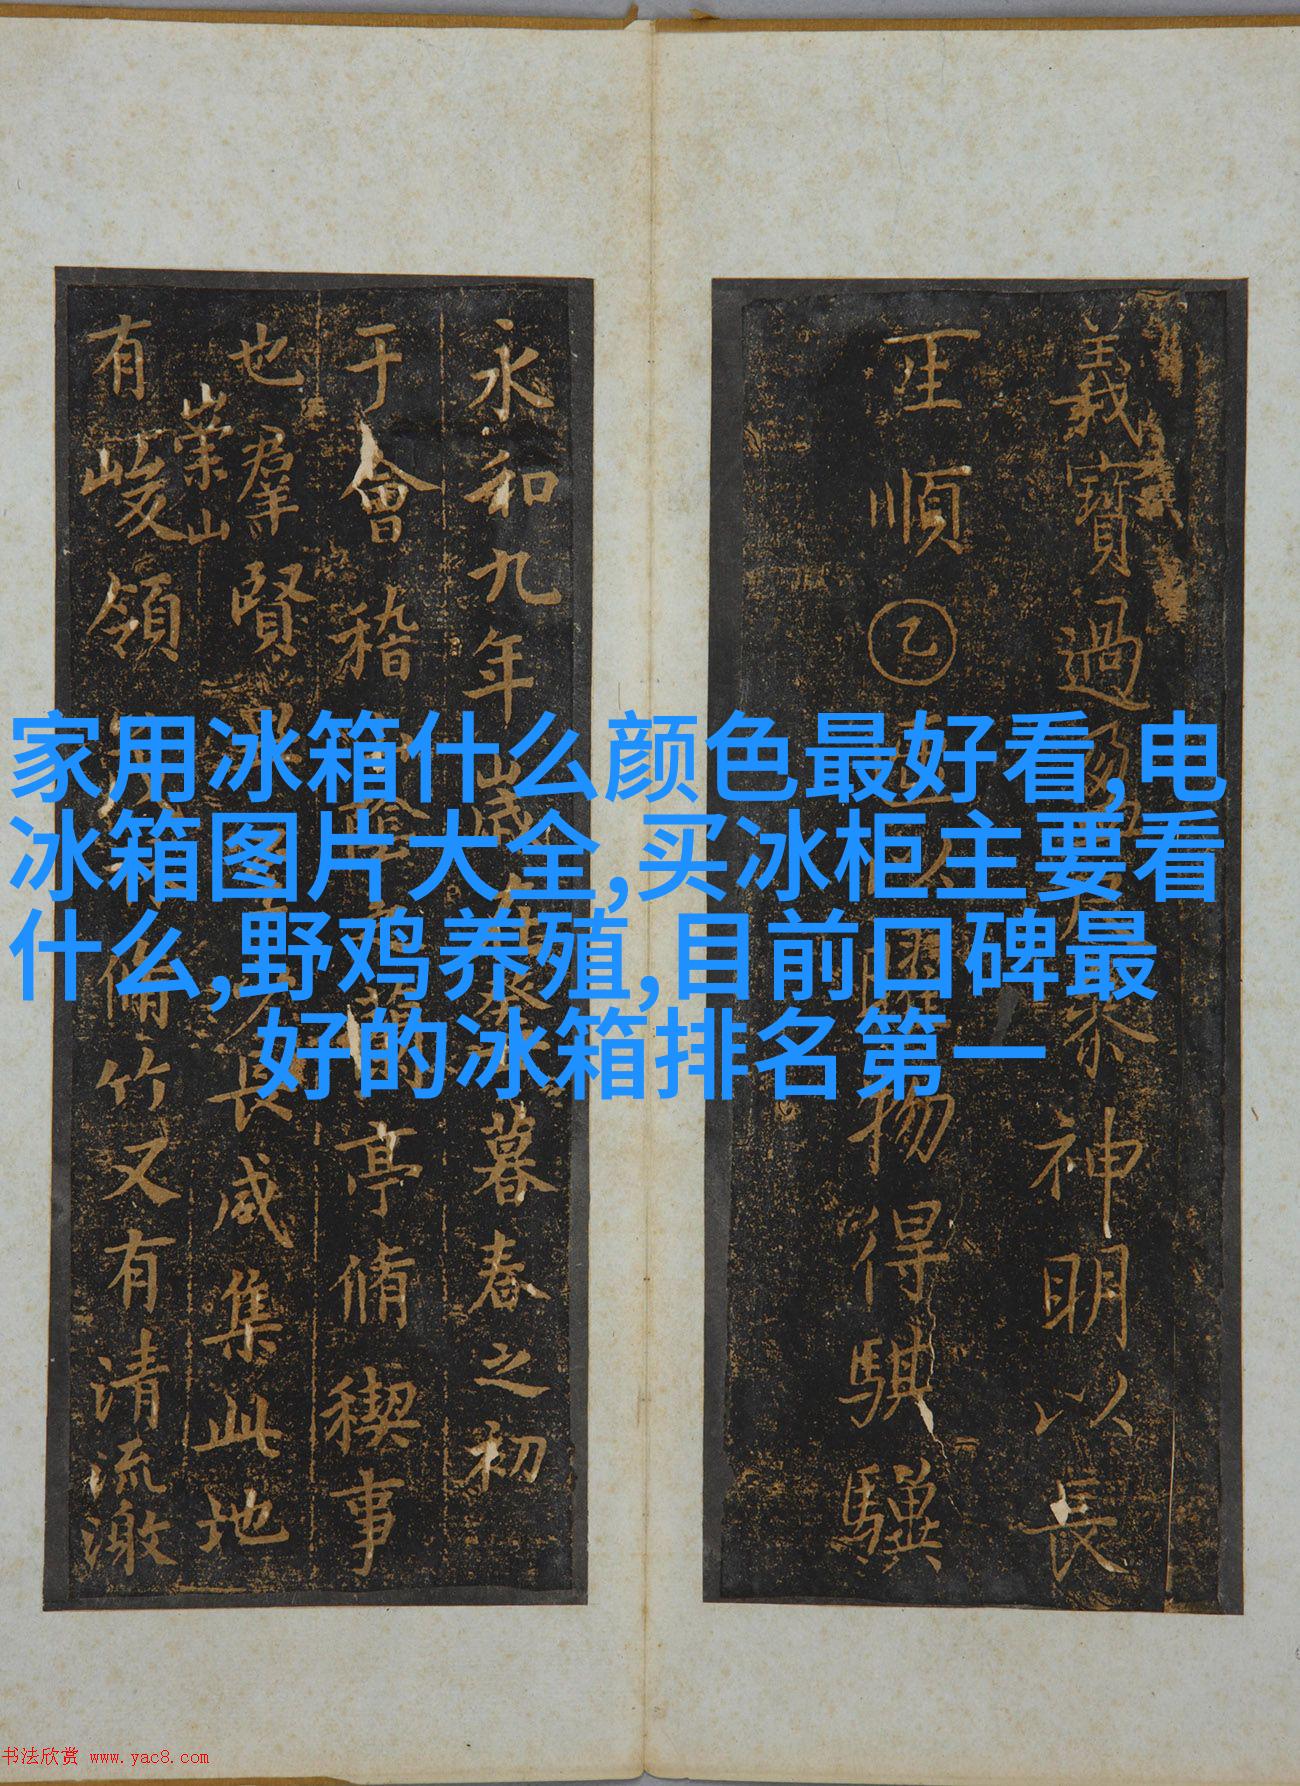 家用冰箱什么颜色最好看,电
冰箱图片大全,买冰柜主要看
什么,野鸡养殖,目前口碑最
好的冰箱排名第一
義寶過
神明以長
順乙
揚得騏驥
永和九年歲
暮春之初
于會稽
亭脩禊事
也群賢
長咸集此地
崇山
有峻領
脩竹又有清流激
书法欣赏 www.yac8.com